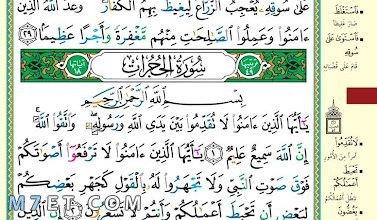 عَلَىٰ سُوقِهِۦ يُعْجِبُ ٱلزُّرَّاعَ لِيَغِيظَ بِهِمُ ٱلْكُفَّارَ ۗ وَعَدَ ٱللَّهُ ٱلَّذِينَ
ءَامَنُوا۟ وَعَمِلُوا۟ ٱلصَّٰلِحَٰتِ مِنْهُم مَّغْفِرَةً وَأَجْرًا عَظِيمًۢا ٢٩
سُورَةُ الْحُجُرَاتِ
بِسْمِ ٱللَّهِ ٱلرَّحْمَٰنِ ٱلرَّحِيمِ
يَٰٓأَيُّهَا ٱلَّذِينَ ءَامَنُوا۟ لَا تُقَدِّمُوا۟ بَيْنَ يَدَىِ ٱللَّهِ وَرَسُولِهِۦ ۖ وَٱتَّقُوا۟ ٱللَّهَ ۚ
إِنَّ ٱللَّهَ سَمِيعٌ عَلِيمٌ ١ يَٰٓأَيُّهَا ٱلَّذِينَ ءَامَنُوا۟ لَا تَرْفَعُوٓا۟ أَصْوَٰتَكُمْ
فَوْقَ صَوْتِ ٱلنَّبِىِّ وَلَا تَجْهَرُوا۟ لَهُۥ بِٱلْقَوْلِ كَجَهْرِ بَعْضِكُمْ
لِبَعْضٍ أَن تَحْبَطَ أَعْمَٰلُكُمْ وَأَنتُمْ لَا تَشْعُرُونَ
فَاسْتَغْلَظَ
فَاسْتَوَىٰ عَلَىٰ
سُوقِهِ
قَامَ عَلَى قُضْبَانِهِ
أَن تَحْبَطَ
أَعْمَالُكُمْ
MZ-ET.COM